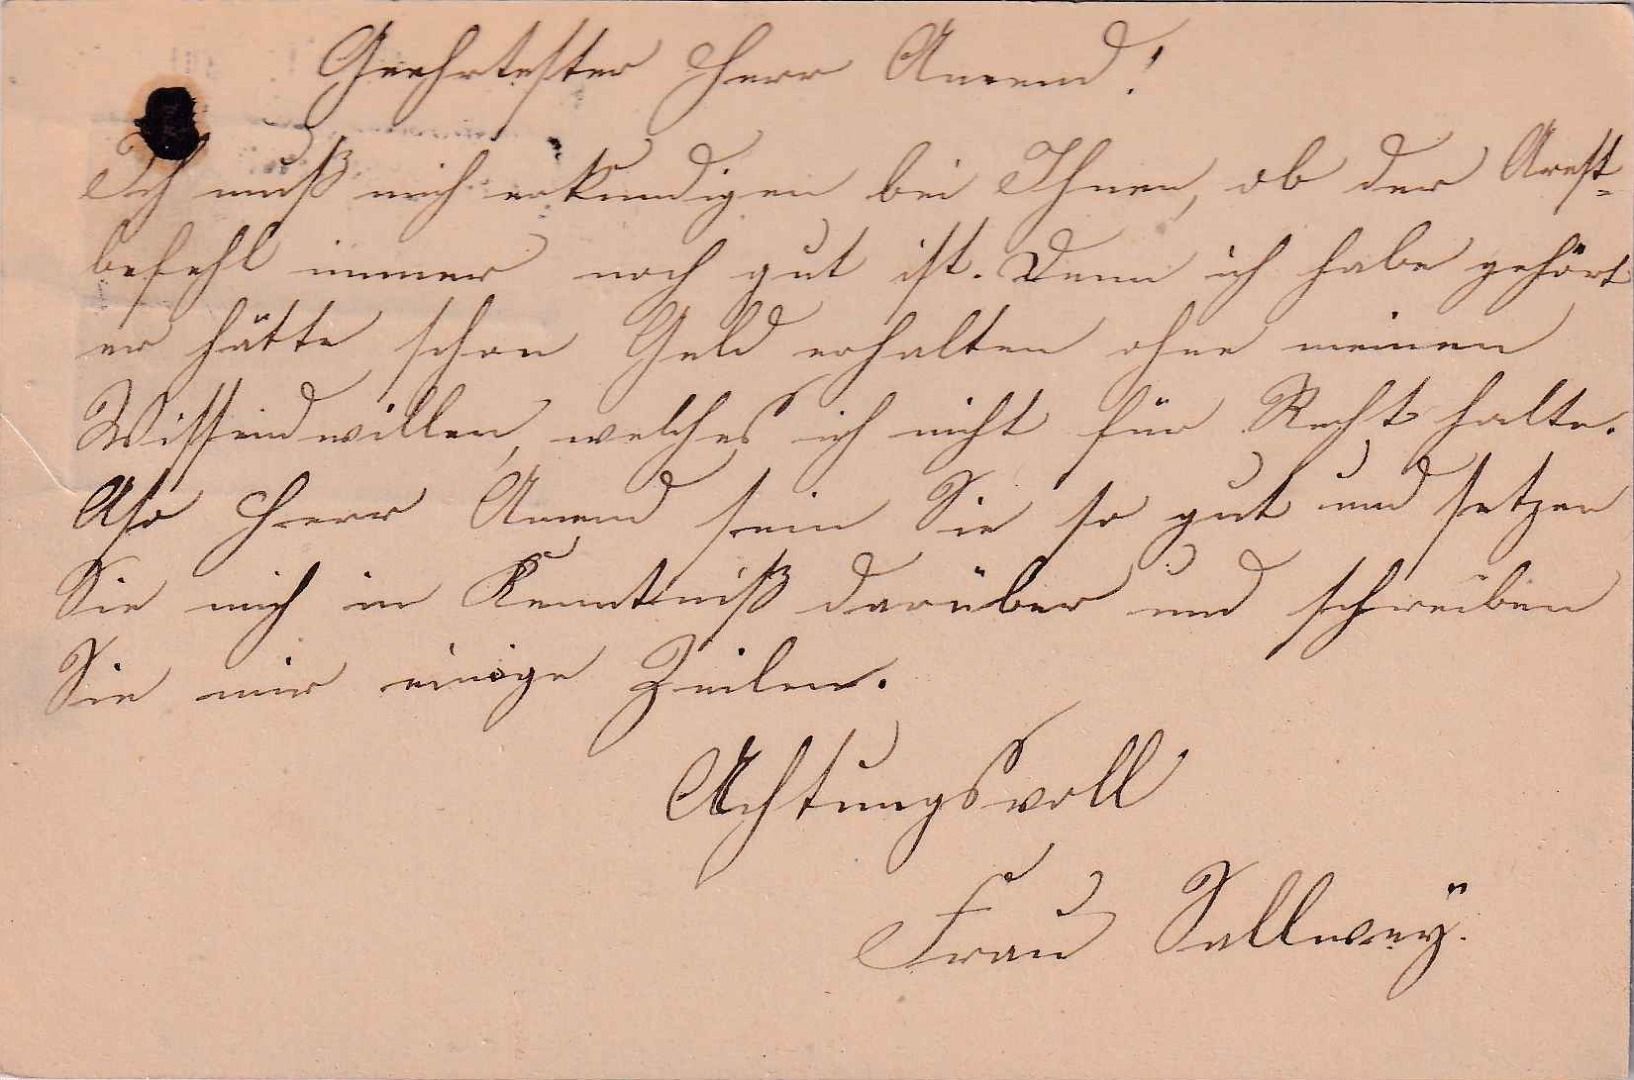 Geehrtester Herr Amend!
Ich muß mich erkundigen bei Ihnen, ob der Arest-
befehl immer noch gut ist. Denn ich habe gehört
er hätte schon Geld erhalten ohne meinen
Wissend willen, welches ich nicht für Recht halte.
Also Herr Amend sein Sie so gut und setzen
Sie mich in Kenntniß darüber und schreiben
Sie mir einige Zeilen.
Achtungsvoll
Frau Sallweÿ.